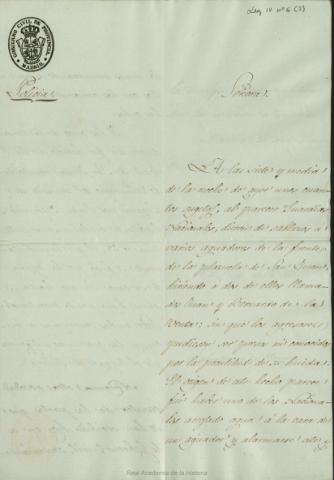 Leg IV nº 6 (3)
GOBIERNO CIVIL DE PROVINCIA.
MADRID
Policia.
Señora.
A las siete y media
de la noche de ayer unos cuan-
tos sugetos, al parecer Guardias
Nacionales, dieron de sablazos a
varios aguadores de la fuente
de la plazuela de San Juan,
hiriendo a dos de ellos llama-
dos Juan y Bernardo de la
Venta; sin que los agresores
pudiesen ser presos ni conocidos
por la prontitud de su huida.
El origen de este hecho parece
fué haber uno de los Naciona-
les arrojado agua á la cara de
un aguador y alarmarse este y
Real Academia de la Historia